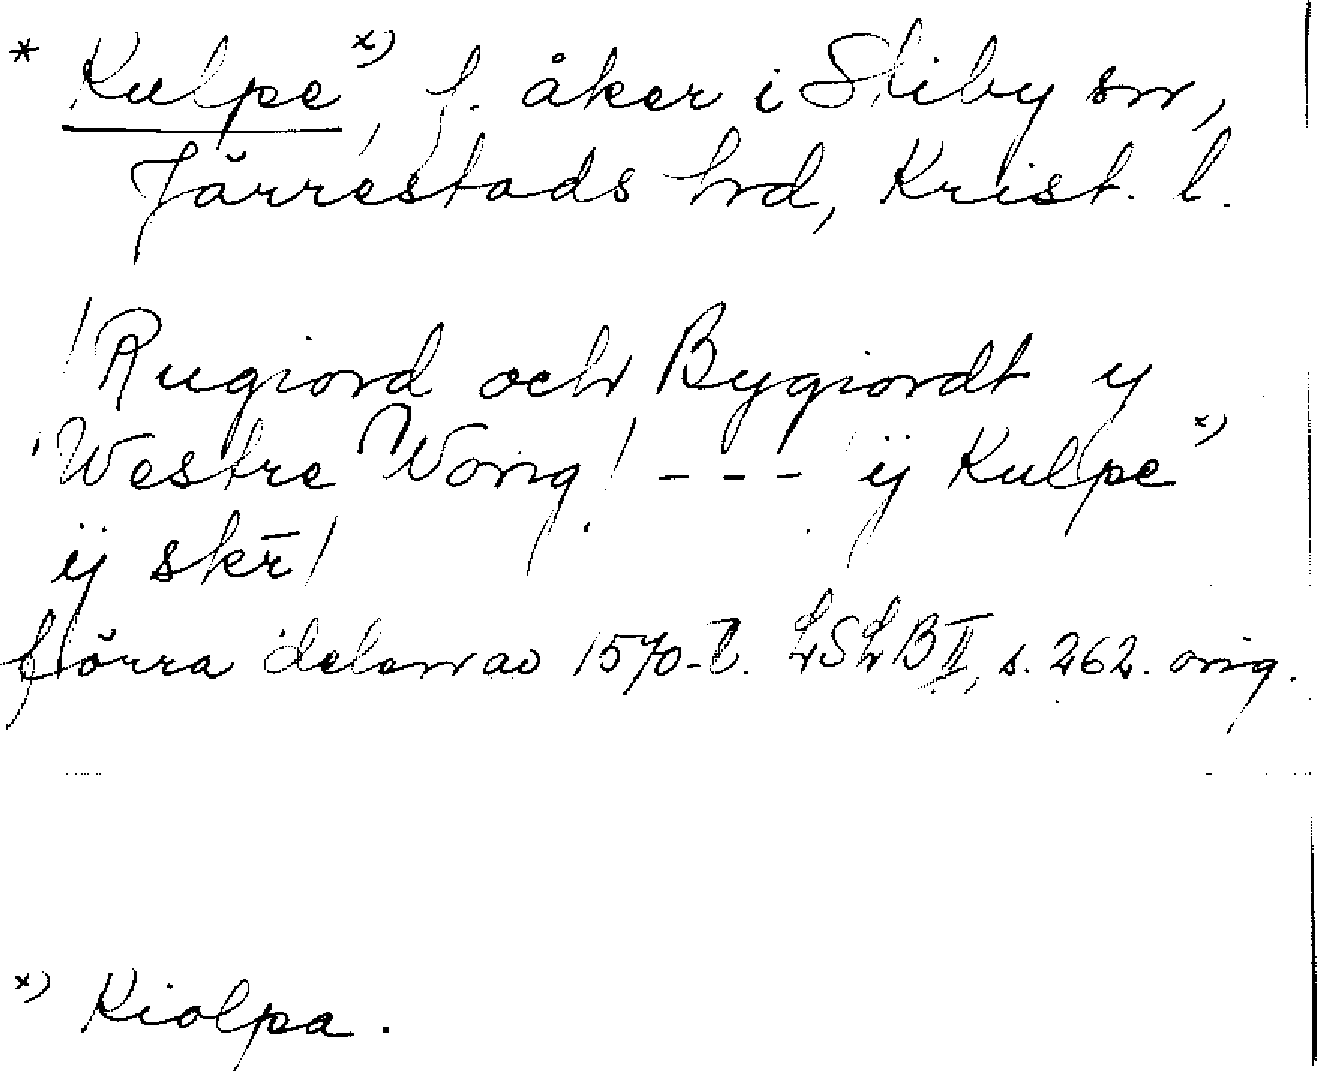 * Kulpe x), f. åker i Stiby sn,
Järrestads hrd, Krist. l.
/Rugiord och Bygiordt y
Westre Wong/ - - - ÿ Kulpe x)
ÿ skr̄/
förra delen av 1570-t. LSLB II, s. 262. orig.
x) Kiolpa.